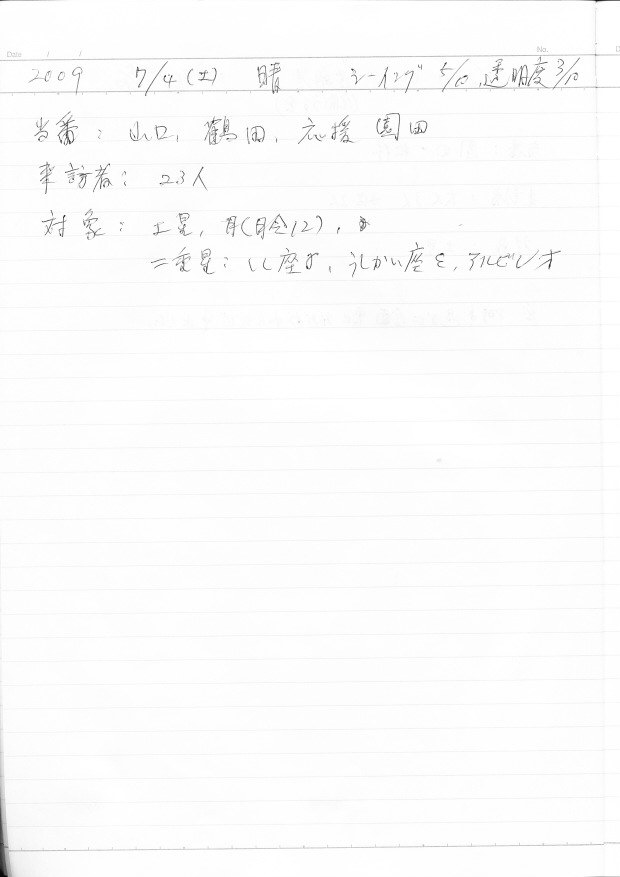 Date / / No.
2009 7/4(土) 晴 シーイング 5/10, 透明度 3/10
当番: 山口, 鶴田, 応援 園田
来訪者: 23人
対象: 土星, 月(月令12),
二重星: しし座γ, うしかい座ε, アルビレオ